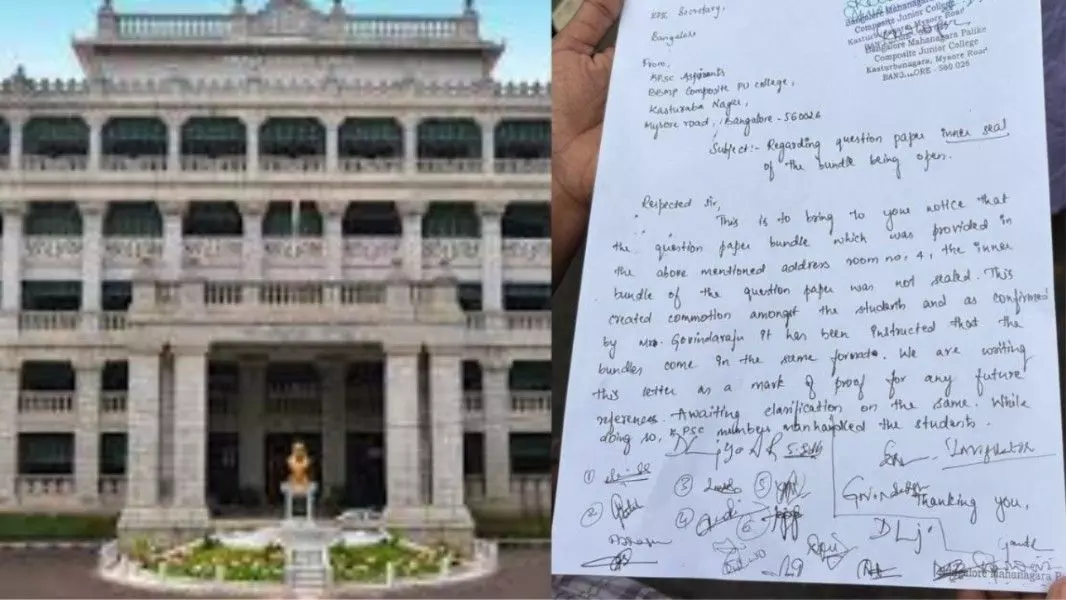 KPSC Secretary,
Bangalore
Bangalore Mahanagara Palike
Composite Junior College
Kasturbanagara, Mysore Road
Bangalore Mahanagara Palike
Composite Junior College
Kasturbanagara, Mysore Road
BANGALORE - 560 026
From,
KPSC Aspirants
BBMP Composite PU college,
Kasturaba Nagar,
Mysore road, Bangalore - 560026
Subject:- Regarding question paper inner seal
of the bundle being open.
Respected Sir,
This is to bring to your notice that
the question paper bundle which was provided in
the above mentioned address room no. 4, the inner
bundle of the question paper was not sealed. This
created commotion amongst the students and as confirmed
by Mr. Govindaraju it has been instructed that the
bundles come in the same formate. We are writing
this letter as a mark of proof for any future
references. Awaiting clarification on the same. While
doing so, KPSC members manhandled the students.
Invigilator
Thanking you,
①
③
⑤
②
④
⑥
Bangalore Mahanagara P